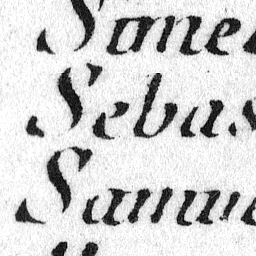 Some
Sebas
Samue